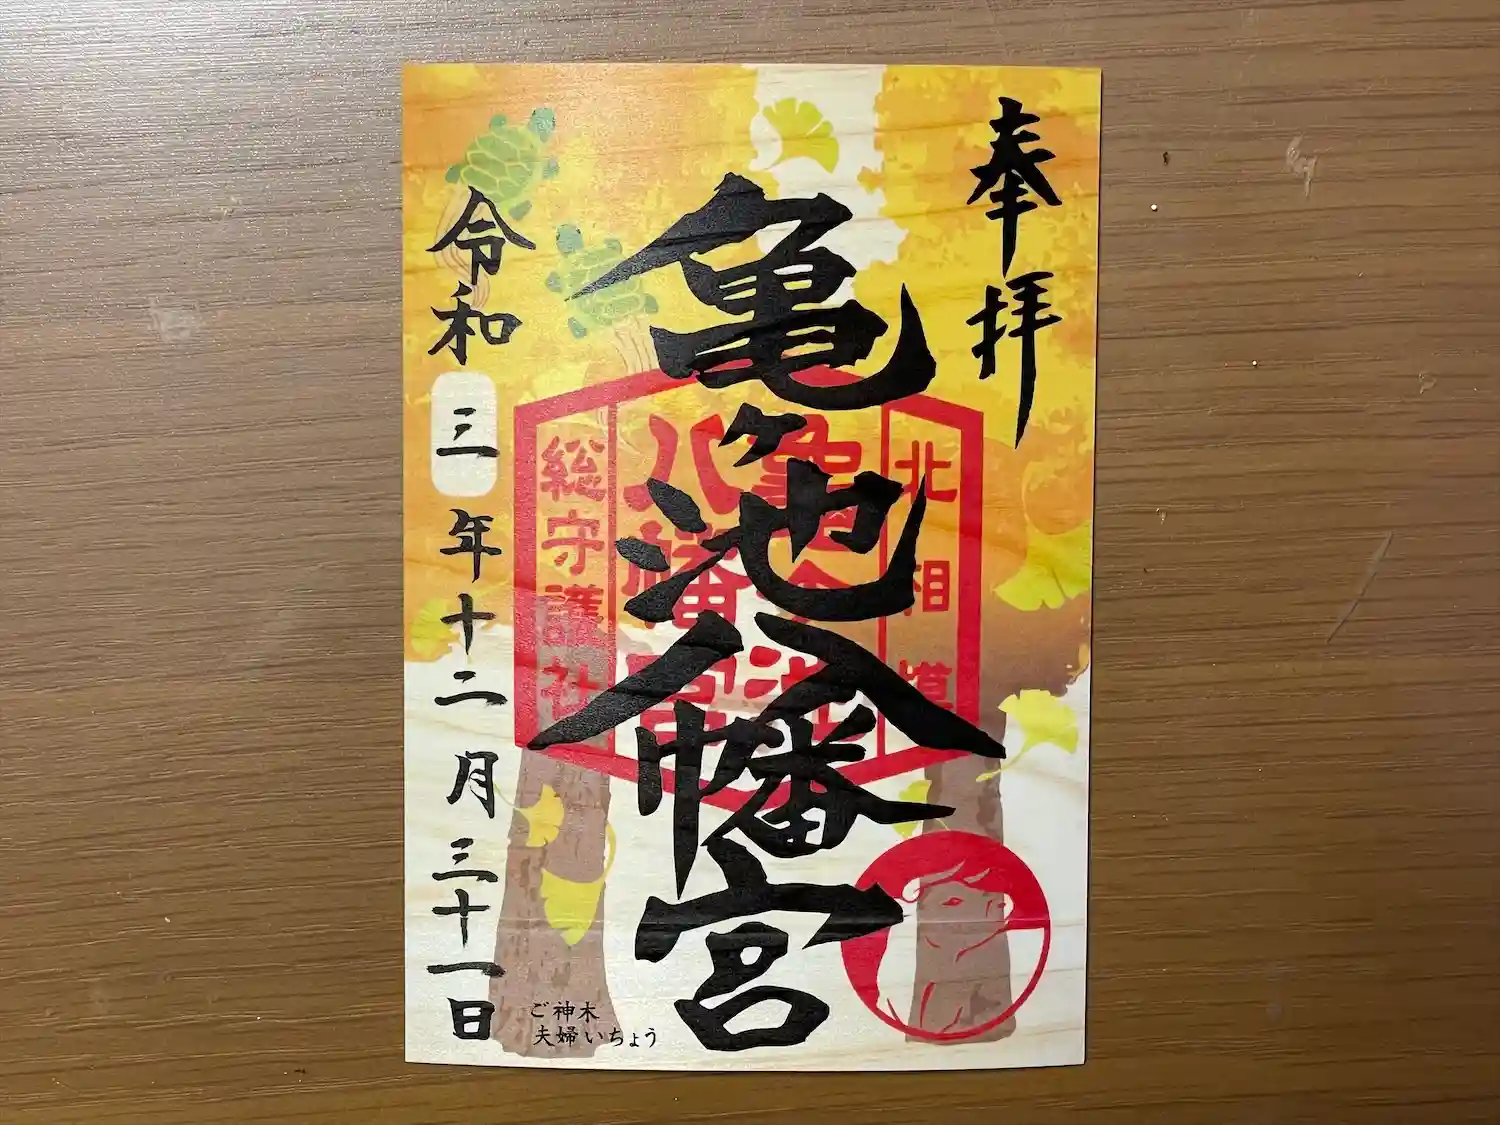 奉拝
亀ヶ池八幡宮
北相模
亀ヶ池
八幡宮
総守護社
令和三年十二月三十一日
ご神木
夫婦いちょう